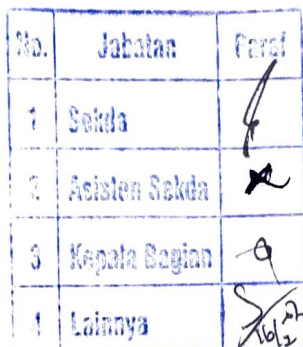 No. Jabatan Paraf
1 Sekda
2 Asisten Sekda
3 Kepala Bagian
4 Lainnya